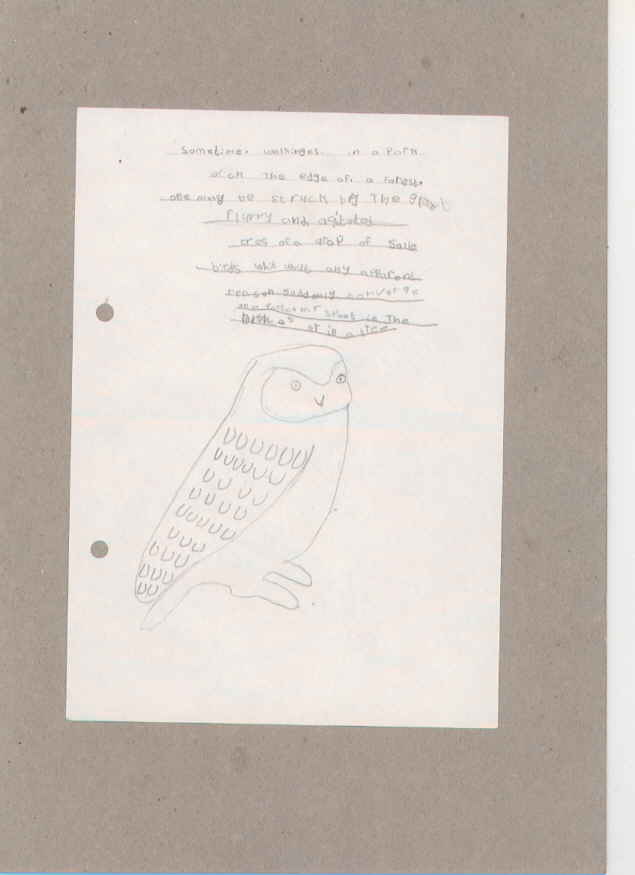 sometimes walhinges in a Park
or on the edge of a forest.
one may be struck by The great
flurry and agitated
cries of a drop of Smale
birds whit whous any apparent
reason suddenly converge
one Particular in The
bushes or in a tree